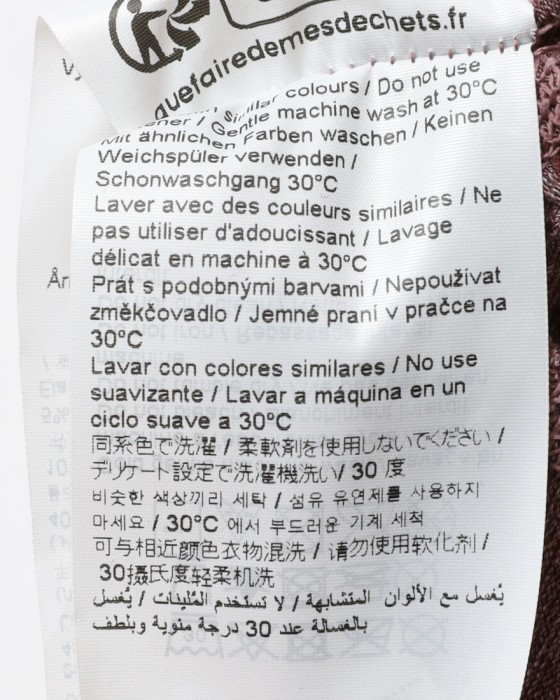 quefairedemesdechets.fr
similar colours / Do not use
ener / Gentle machine wash at 30°C
Mit ähnlichen Farben waschen / Keinen
Weichspüler verwenden /
Schonwaschgang 30°C
Laver avec des couleurs similaires / Ne
pas utiliser d'adoucissant / Lavage
délicat en machine à 30°C
Prát s podobnými barvami / Nepoužívat
změkčovadlo / Jemné praní v pračce na
30°C
Lavar con colores similares / No use
suavizante / Lavar a máquina en un
ciclo suave a 30°C
同系色で洗濯 / 柔軟剤を使用しないでください /
デリケート設定で洗濯機洗い/ 30 度
비슷한 색상끼리 세탁 / 섬유 유연제를 사용하지
마세요 / 30°C 에서 부드러운 기계 세척
可与相近颜色衣物混洗 / 请勿使用软化剂 /
30摄氏度轻柔机洗
يُغسل مع الألوان المتشابهة / لا تستخدم المُلينات / يُغسل
بالغسالة عند 30 درجة مئوية وبلطف